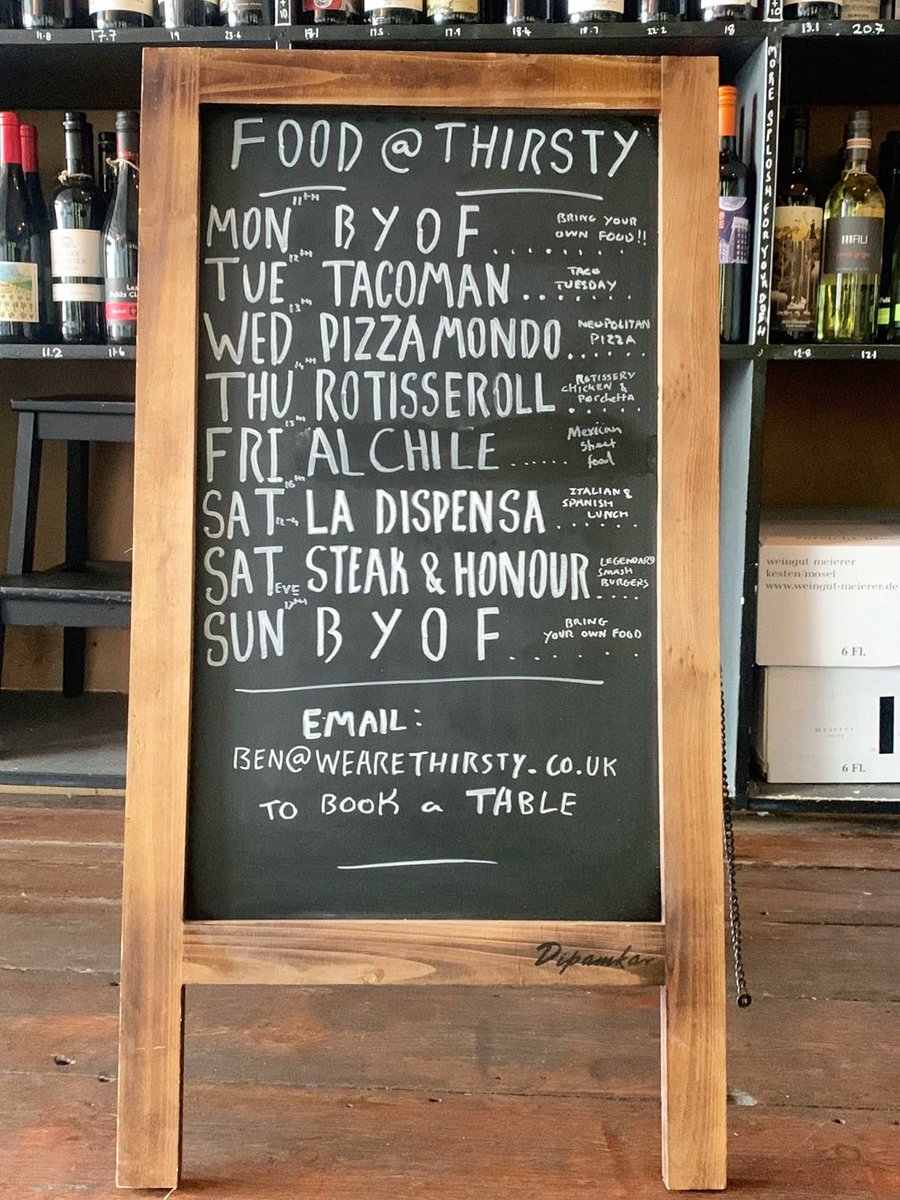 11.8 17.7 19 23.6 18.1 17.5 17.9 18.4 18.7 22.2 18 +10 13.1 20.7
MORE SPLOSH FOR YOUR DOSH
FOOD @ THIRSTY
MON 11TH BYOF...... BRING YOUR OWN FOOD!!
TUE 12TH TACOMAN....... TACO TUESDAY
WED 13TH PIZZAMONDO...... NEOPOLITAN PIZZA
THU 14TH ROTISSEROLL...... ROTISSERY CHICKEN & Porchetta
FRI 15TH AL CHILE...... Mexican Street food
SAT 16TH 12-4 LA DISPENSA....... ITALIAN & SPANISH LUNCH
SAT EVE STEAK & HONOUR.... LEGENDARY SMASH BURGERS
SUN 17TH BYOF....... BRING YOUR OWN FOOD
EMAIL:
BEN@WEARETHIRSTY.CO.UK
TO BOOK a TABLE
Dipamkar
11.2 11.6
FIU
12.1
weingut meierer
kesten/mosel
www.weingut-meierer.de
6 Fl.
meierer
6 Fl.